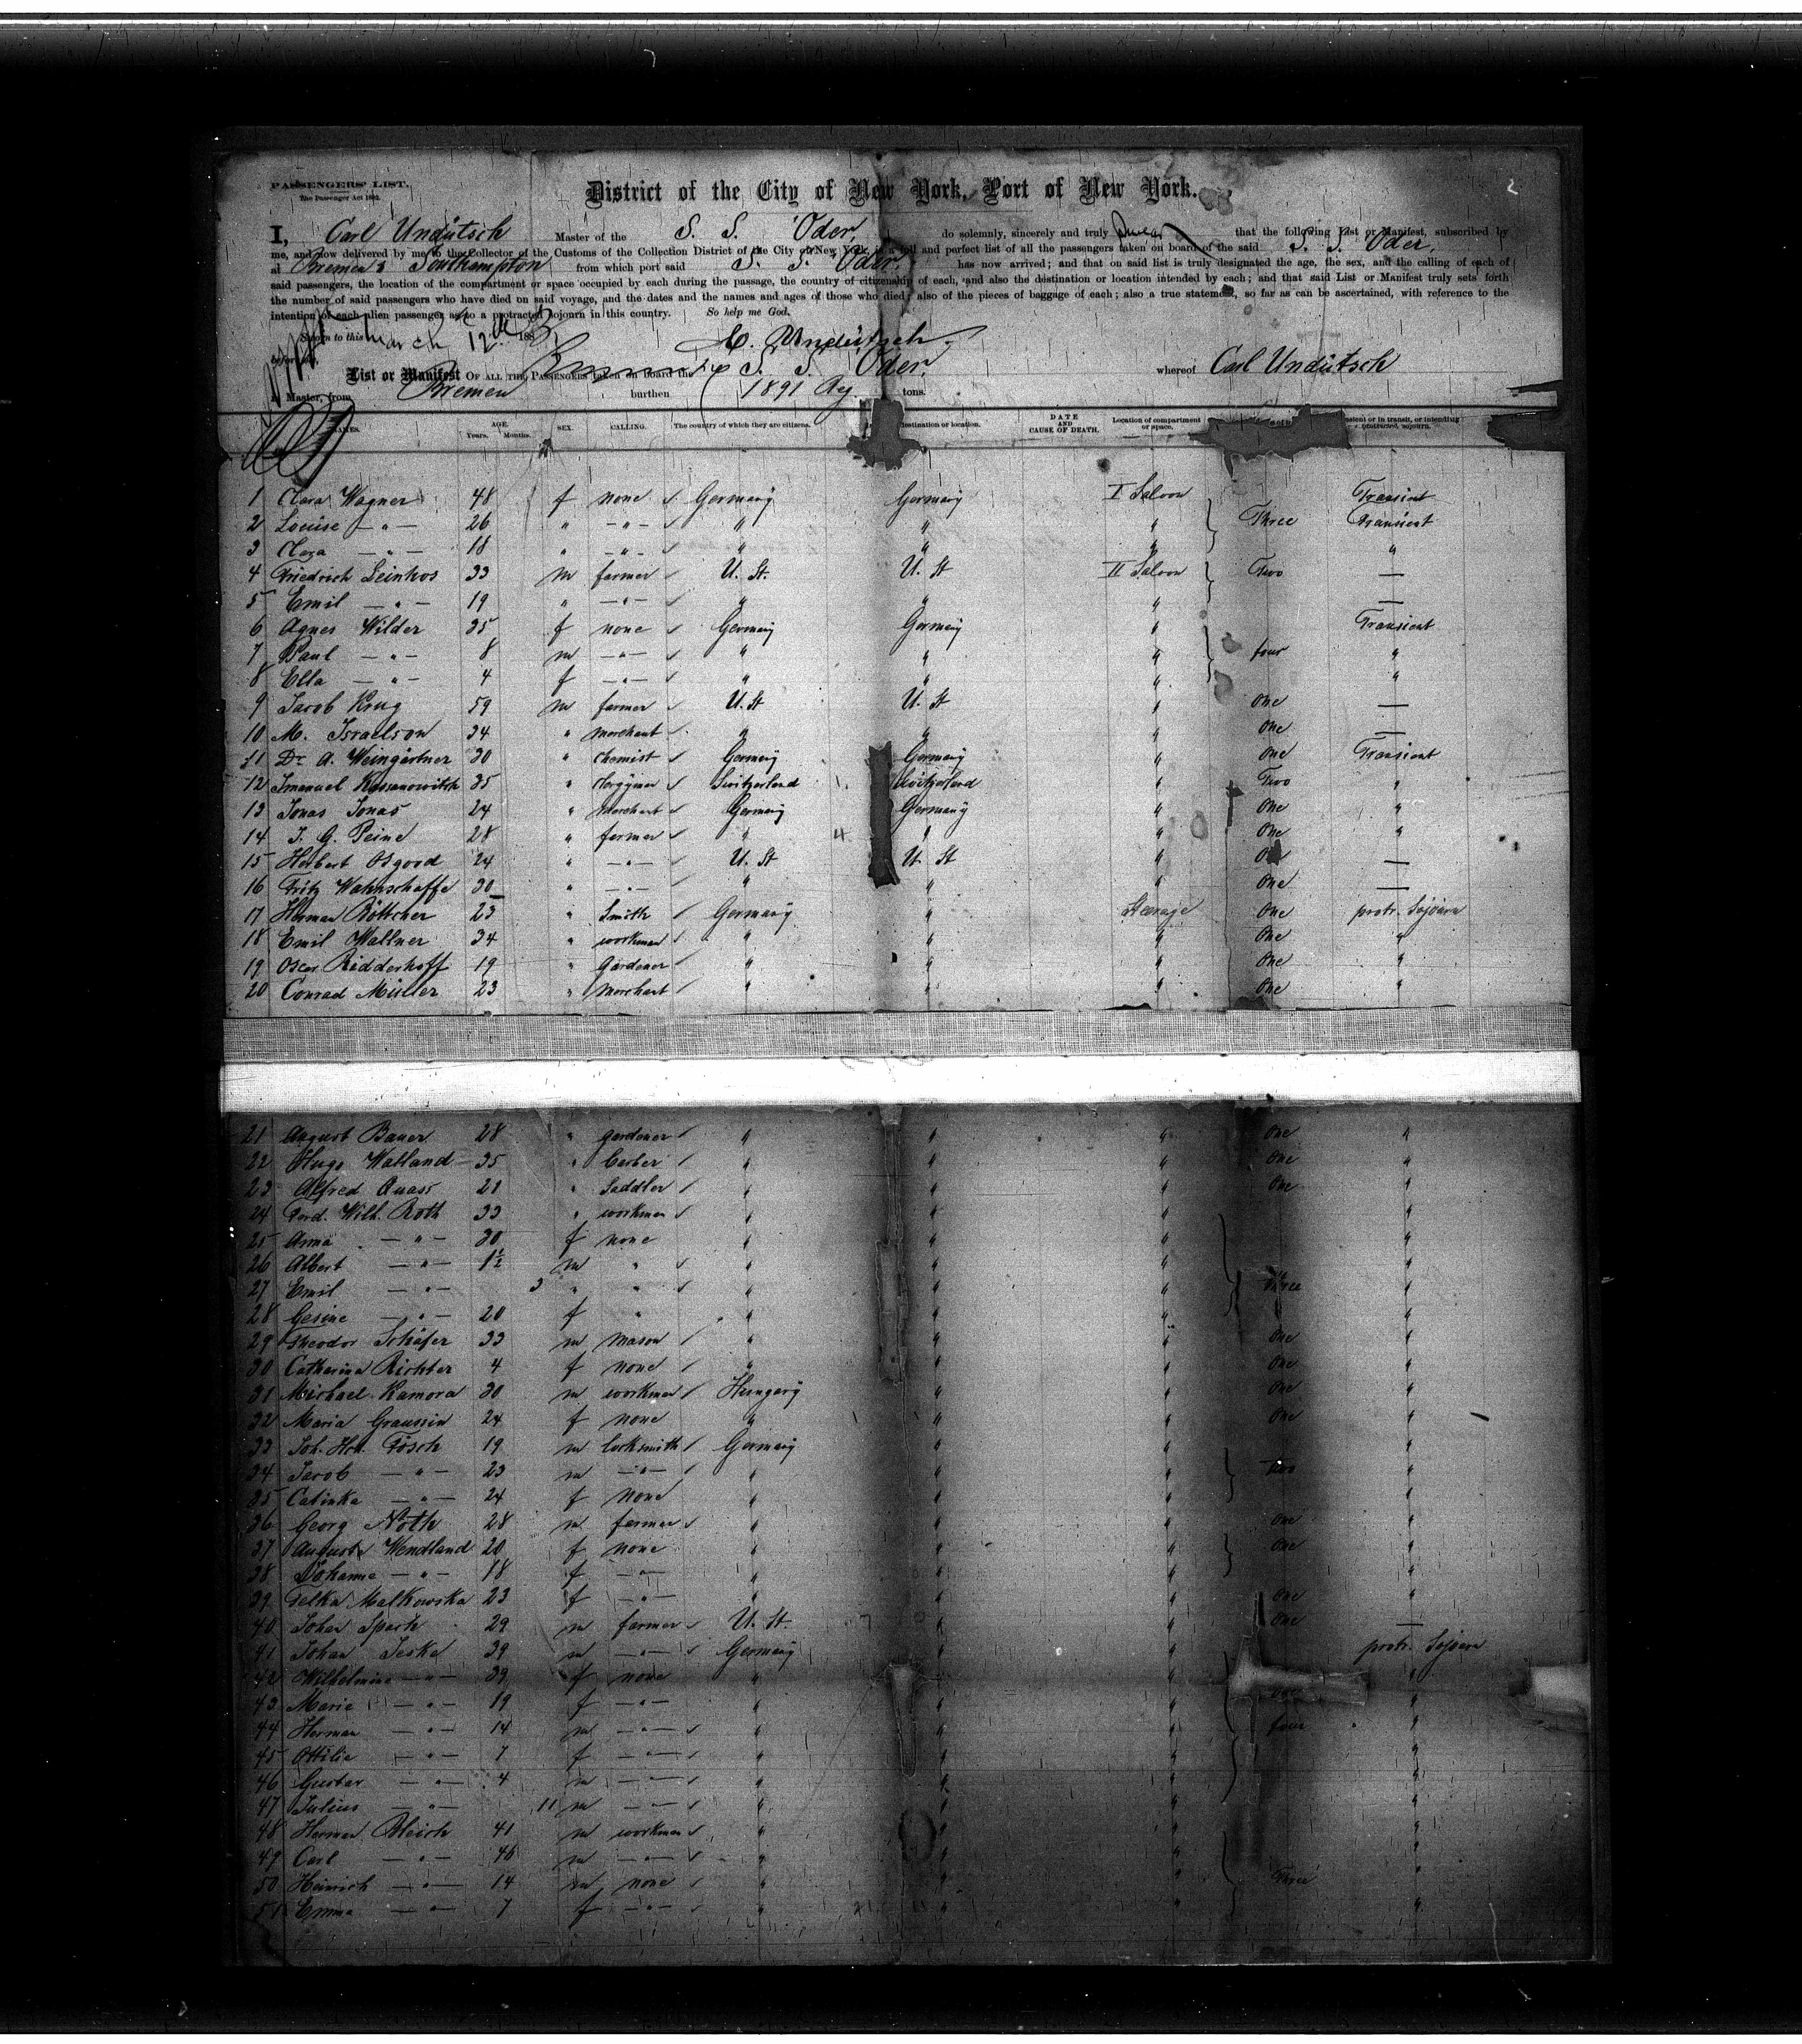 2
PASSENGERS' LIST.
The Passenger Act 1882.
District of the City of New York, Port of New York.
I, Carl Undütsch Master of the S. S. "Oder" do solemnly, sincerely and truly swear that the following List or Manifest, subscribed by
me, and now delivered by me to the Collector of the Customs of the Collection District of the City of New York, is a full and perfect list of all the passengers taken on board of the said S. S. Oder.
at Bremen & Southampton from which port said S. S. "Oder" has now arrived; and that on said list is truly designated the age, the sex, and the calling of each of
said passengers, the location of the compartment or space occupied by each during the passage, the country of citizenship of each, and also the destination or location intended by each; and that said List or Manifest truly sets forth
the number of said passengers who have died on said voyage, and the dates and the names and ages of those who died; also of the pieces of baggage of each; also a true statement, so far as can be ascertained, with reference to the
intention of each alien passenger as to a protracted sojourn in this country. So help me God.
Sworn to this March 12th 188 C. Undütsch.
before me,
List or Manifest OF ALL THE PASSENGERS taken on board the S. S. Oder. whereof Carl Undütsch
is Master, from Bremen burthen 1891 Reg. tons.
NAMES. AGE. Years. Months. SEX. CALLING. The country of which they are citizens. destination or location. DATE AND CAUSE OF DEATH. Location of compartment or space. transient or in transit, or intending protracted sojourn.
1 Clara Wagner 48 f none Germany Germany I Saloon Transient
2 Louise — " — 26 " — " — " " " Three Transient
3 Clara — " — 18 " — " — " " " "
4 Friedrich Leinkos 33 m farmer U. St. U. St II Saloon Two —
5 Emil — " — 19 " — " — " " " —
6 Agnes Wilder 35 f none Germany Germany " Transient
7 Paul — " — 8 m — " — " " " four "
8 Ella — " — 4 f — " — " " " "
9 Jacob Krug 59 m farmer U. St U. St " One —
10 M. Israelson 34 " merchant " " " One —
11 Dr. A. Weingärtner 30 " chemist Germany Germany " One Transient
12 Imanuel Kossanowitsh 35 " clergyman Switzerland Switzerland " Two "
13 Jonas Jonas 24 " Merchant Germany Germany " One "
14 J. G. Peine 28 " farmer " 4 " " One "
15 Herbert Osgood 24 " — " — U. St U. St " One —
16 Fritz Wahnschaffe 30 " — " — " " " One —
17 Herman Böttcher 25 " Smith Germany " Steerage One protr. Sojourn
18 Emil Wallner 34 " workman " " " One "
19 Oscar Ridderhoff 19 " gardener " " " One "
20 Conrad Müller 23 " Merchant " " " One "
21 August Bauer 28 " gardener " " " One "
22 Hugo Watland 35 " barber " " " One "
23 Alfred Quass 21 " Saddler " " " One "
24 Ferd. Wilh. Roth 33 " workman " " " "
25 Anna — " — 30 f none " " " "
26 Albert — " — 1½ m " " " " "
27 Emil — " — 3 " " " " " Three "
28 Gesine — " — 20 f " " " " "
29 Theodor Schäfer 33 m mason " " " One "
30 Catharina Richter 4 f none " " " One "
31 Michael Kamora 30 m workman Hungary " " One "
32 Maria Graussin 24 f none " " " One "
33 Joh. Hch. Tösch 19 m locksmith Germany " " "
34 Jacob — " — 23 m — " — " " " Two "
35 Catinka — " — 24 f none " " " "
36 Georg Noth 28 m farmer " " " One "
37 Augusta Wendland 20 f none " " " One "
38 Johanne — " — 18 f — " — " " " "
39 Felka Malkowska 23 f — " — " " " One "
40 Johan Spech 29 m farmer U. St. " " One —
41 Johan Jeska 39 m — " — Germany " " protr. Sojourn
42 Wilhelmine — " — 39 f none " " " "
43 Marie — " — 19 f — " — " " " "
44 Herman — " — 14 m — " — " " " four "
45 Ottilie — " — 7 f — " — " " " "
46 Gustav — " — 4 m — " — " " " "
47 Julius — " — 11 m — " — " " " "
48 Herman Bleich 41 m workman " " " "
49 Carl — " — 46 m — " — " " " "
50 Heinrich — " — 14 m none " " " Three "
51 Emma — " — 7 f — " — " " " "